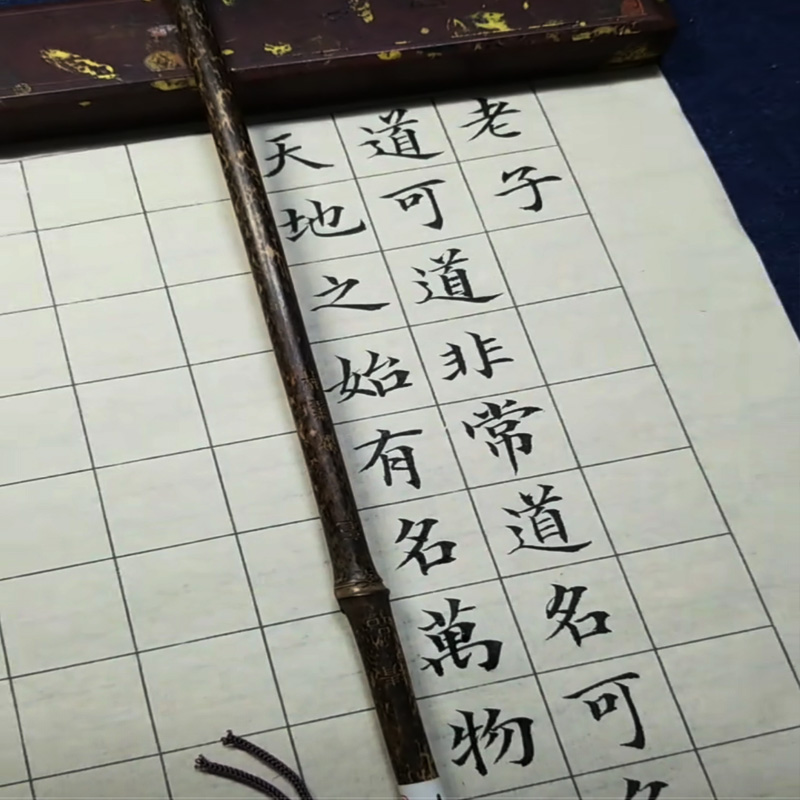 老子
道可道非常道名可名
天地之始有名萬物